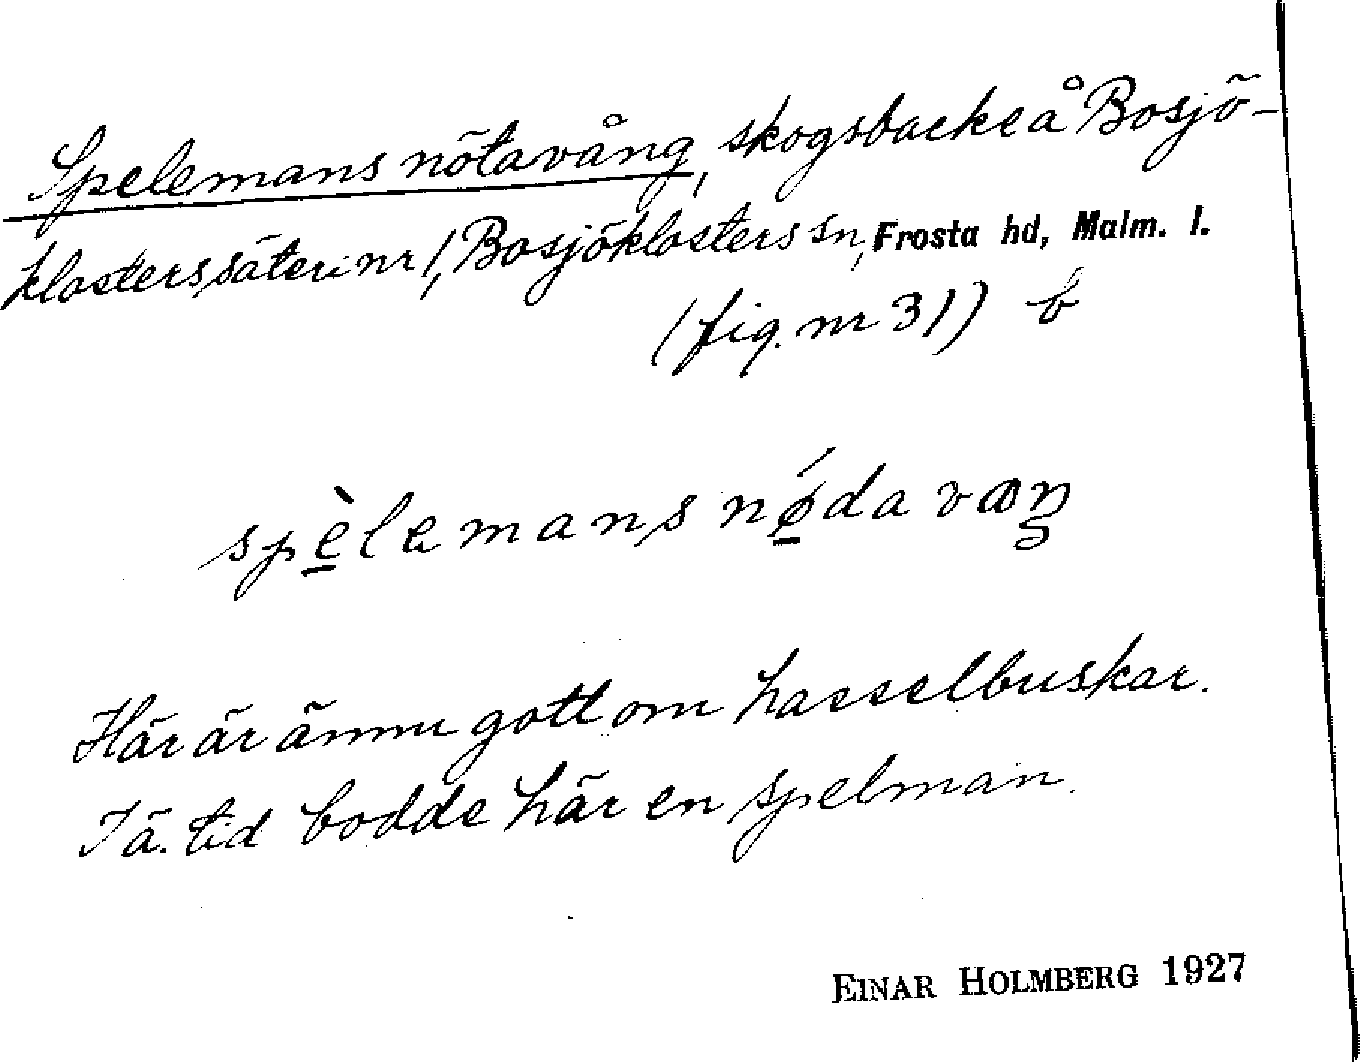 Spelemans nötavång, skogsbacke å Bosjö-
klosters säteri nr 1, Bosjöklosters sn, Frosta hd, Malm. l.
(fig. nr 31) b
spèlemans nǿdavaŋ
Här är ännu gott om hasselbuskar.
I ä. tid bodde här en spelman.
EINAR HOLMBERG 1927